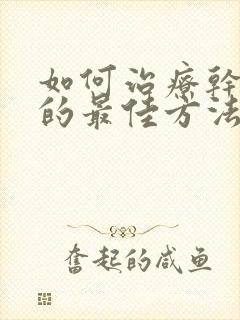 如何治療幹
的最佳方法
奮起的咸鱼